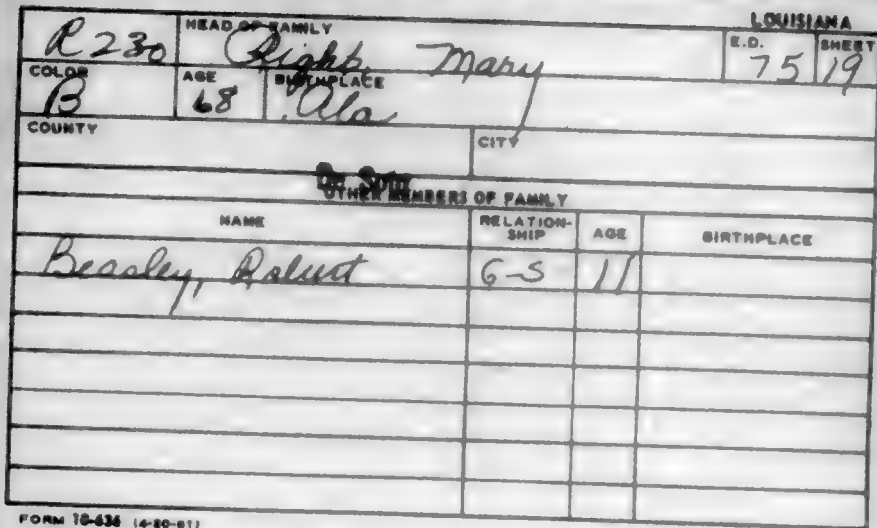 LOUISIANA
R230 HEAD OF FAMILY Right, Mary E.D. 75 SHEET 19
COLOR B AGE 68 BIRTHPLACE Ala
COUNTY CITY
De Soto
OTHER MEMBERS OF FAMILY
NAME RELATION-SHIP AGE BIRTHPLACE
Beasley, Robert G-S 11
FORM 10-636 (4-20-61)